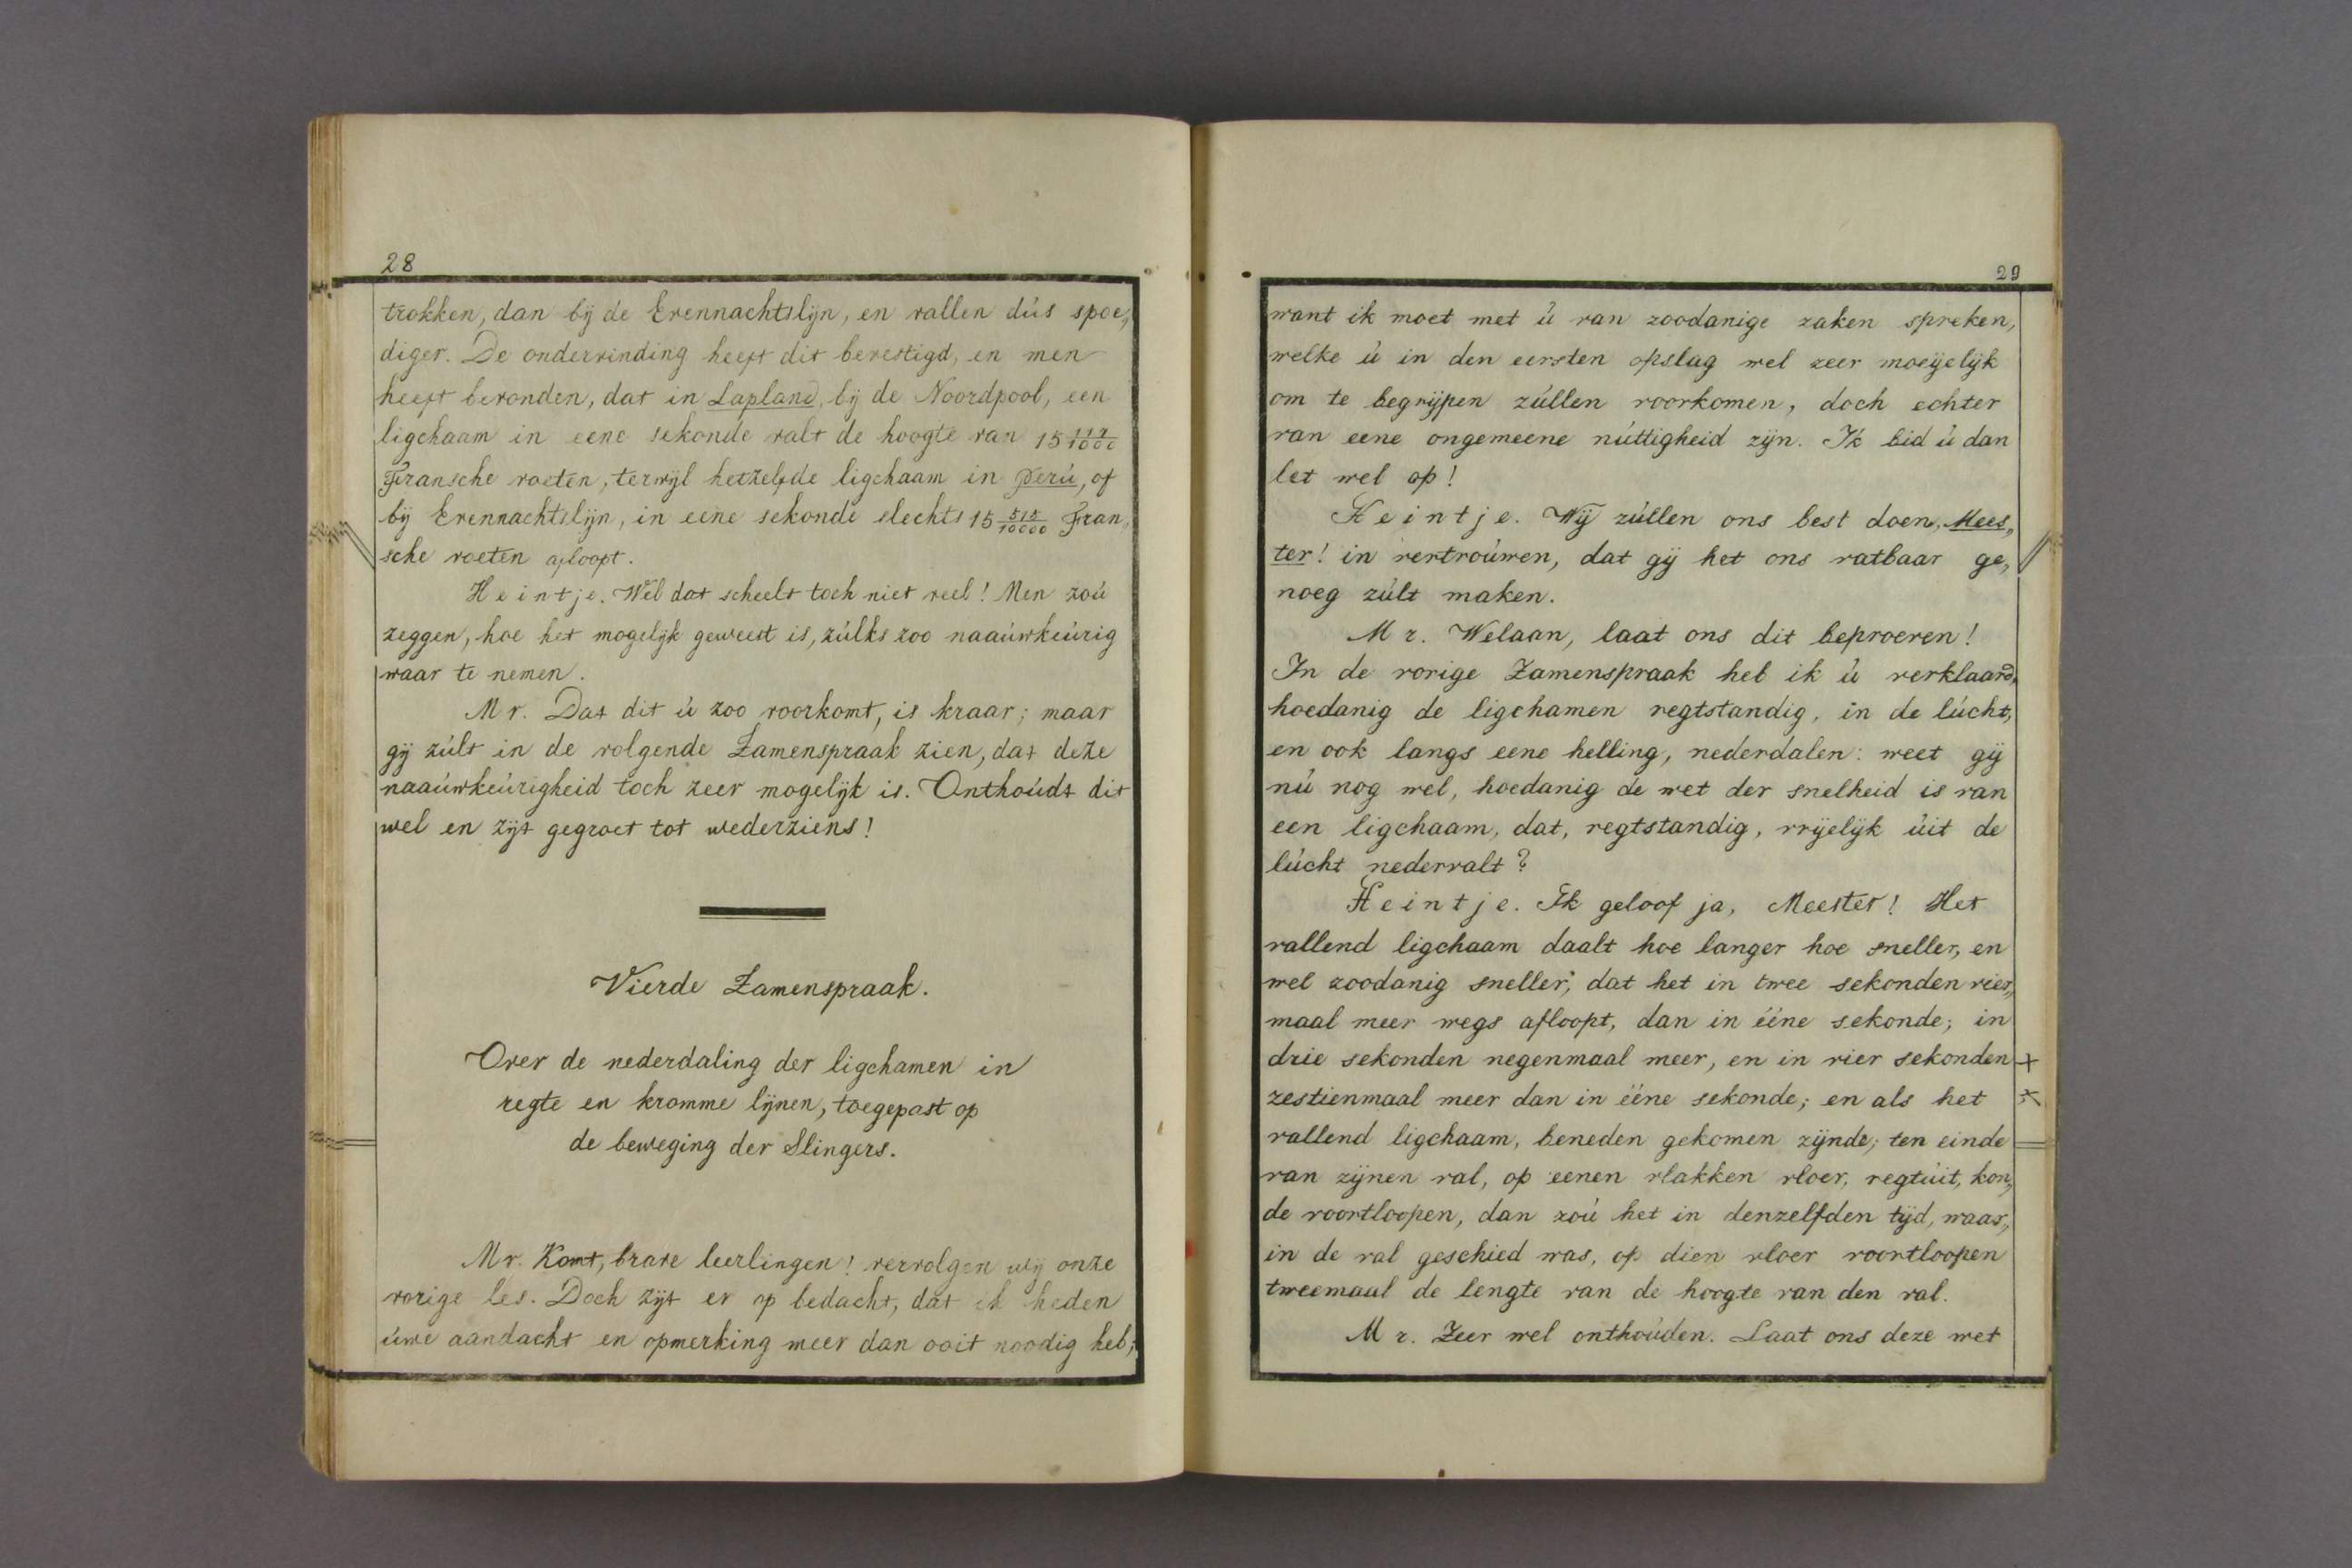 28
trokken, dan bij de Evennachtslijn, en vallen dús spoe„
diger. De ondervinding heeft dit bevestigd, en men
heeft bevonden, dat in Lapland, bij de Noordpool, een
ligchaam in eene sekonde valt de hoogte van 15
Fransche voeten, terwijl hetzelfde ligchaam in Perú, of
bij Evennachtslijn, in eene sekonde slechts 15 515/10000 Fran„
sche voeten afloopt.
Heintje. Wel dat scheelt toch niet veel! Men zoú
zeggen, hoe het mogelijk geweest is, zúlks zoo naaúwkeúrig
waar te nemen.
Mr. Dat dit ú zoo voorkomt, is kraar; maar
gij zúlt in de volgende Zamenspraak zien, dat deze
naaúwkeúrigheid toch zeer mogelijk is. Onthoúdt dit
wel en zijt gegroet tot wederziens!
Vierde Zamenspraak.
Over de nederdaling der ligchamen in
regte en kromme lijnen, toegepast op
de beweging der Slingers.
Mr. Komt, brave leerlingen! vervolgen wij onze
vorige les. Doch zijt er op bedacht, dat ik heden
úwe aandacht en opmerking meer dan ooit noodig heb;
29
want ik moet met ú van zoodanige zaken spreken,
welke ú in den eersten opslag wel zeer moeijelijk
om te begrijpen zúllen voorkomen, doch echter
van eene ongemeene núttigheid zijn. Ik bid ú dan
let wel op!
Heintje. Wij zúllen ons best doen, Mees„
ter! in vertroúwen, dat gij het ons vatbaar ge„
noeg zúlt maken.
Mr. Welaan, laat ons dit beproeven!
In de vorige Zamenspraak heb ik ú verklaard,
hoedanig de ligchamen regtstandig, in de lúcht,
en ook langs eene helling, nederdalen: weet gij
nú nog wel, hoedanig de wet der snelheid is van
een ligchaam, dat, regtstandig, vrijelijk úit de
lúcht nedervalt?
Heintje. Ik geloof ja, Meester! Het
vallend ligchaam daalt hoe langer hoe sneller, en
wel zoodanig sneller, dat het in twee sekonden vier„
maal meer wegs afloopt, dan in ééne sekonde; in
drie sekonden negenmaal meer, en in vier sekonden
zestienmaal meer dan in ééne sekonde; en als het
vallend ligchaam, beneden gekomen zijnde, ten einde
van zijnen val, op eenen vlakken vloer, regtúit, kon„
de voortloopen, dan zoú het in denzelfden tijd, waar„
in de val geschied was, op dien vloer voortloopen
tweemaal de lengte van de hoogte van den val.
Mr. Zeer wel onthoúden. Laat ons deze wet